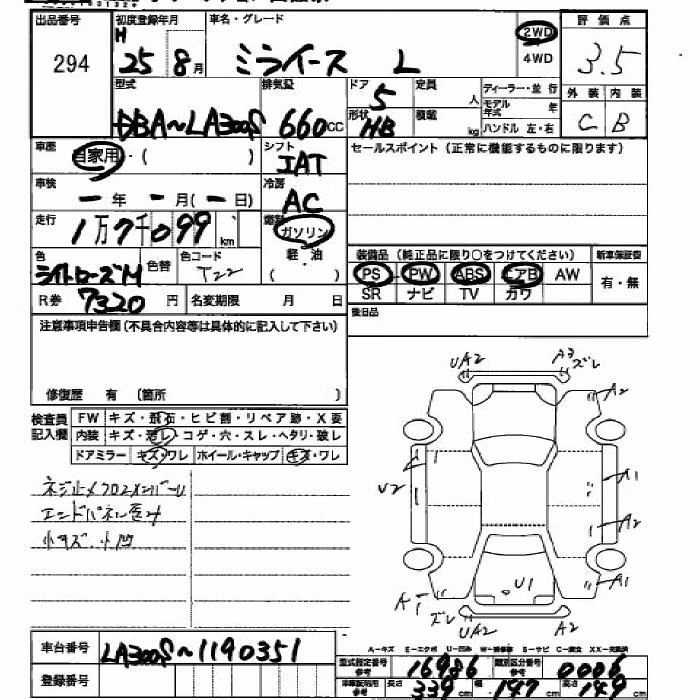 出品番号 初度登録年月 車名・グレード 評価点
294 H 25 8月 ミライース L 2WD 4WD 3.5
型式 排気量 ドア 定員 人 ディーラー・並行 外装 内装
DBA~LA300S 660cc 5 モデル年式 年 C B
形状 HB 積載 kg ハンドル 左・右
車歴 自家用・( ) シフト IAT セールスポイント (正常に機能するものに限ります)
車検 ー年 ー月(ー日) 冷房 AC
走行 1万7千099km 燃料 ガソリン 軽・油 ( )
色 ライトローズM 色替 色コード T22
装備品 (純正品に限り○をつけてください) 新車保証書
PS PW ABS エアB AW 有・無
SR ナビ TV カワ
R券 7320円 名変期限 月 日
後日品
注意事項申告欄(不具合内容等は具体的に記入して下さい)
修復歴 有 〔箇所 〕
検査員記入欄 FW キズ・飛石・ヒビ割・リペア跡・X要
内装 キズ・汚レ・コゲ・穴・スレ・ヘタリ・破レ
ドアミラー キズ・ワレ ホイール・キャップ キズ・ワレ
ネジ止メクロスメンバーU
エンドパネル歪ミ
小キズ.小凹
UA2 A3 ズレ
A2
U2 A1
A2
U1 A1
A1 ズレ
UA2 A2
A-キズ E-エクボ U-凹み W-補修跡 S-サビ C-腐食 XX-交換済
車台番号 LA300S~1190351
登録番号
型式指定番号 参考 16986 類別区分番号 参考 0006
車庫証明用 参考 長さ 339cm 幅 147cm 高さ 149cm